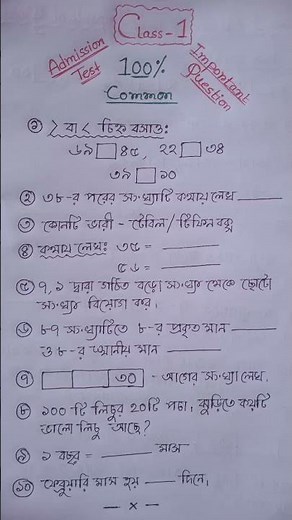 Class-1
Admission Test
Important Question
100%
Common
① > বা < চিহ্ন বসাও:
৬৯ □ ৪৫, ২২ □ ৩৪
৩৯ □ ১০
② ৩৮-র পরের সংখ্যাটি কথায় লেখ
③ কোনটি ভারী - টেবিল / টিফিন বক্স
④ কথায় লেখ: ৩৫ =
৫৬ =
⑤ ৭, ১ দ্বারা গঠিত বড়ো সংখ্যা থেকে ছোটো
সংখ্যার বিয়োগ কর।
⑥ ৮৭ সংখ্যাটিতে ৮-র প্রকৃত মান
ও ৮-র স্থানীয় মান
⑦ ৩০ - আগের সংখ্যা লেখ।
⑧ ১০০ টি লিচুর ২০টি পচা, ঝুড়িতে কয়টি
ভালো লিচু আছে?
⑨ ১ বছর = মাস
⑩ ফেব্রুয়ারি মাস হয় দিনে।
— x —